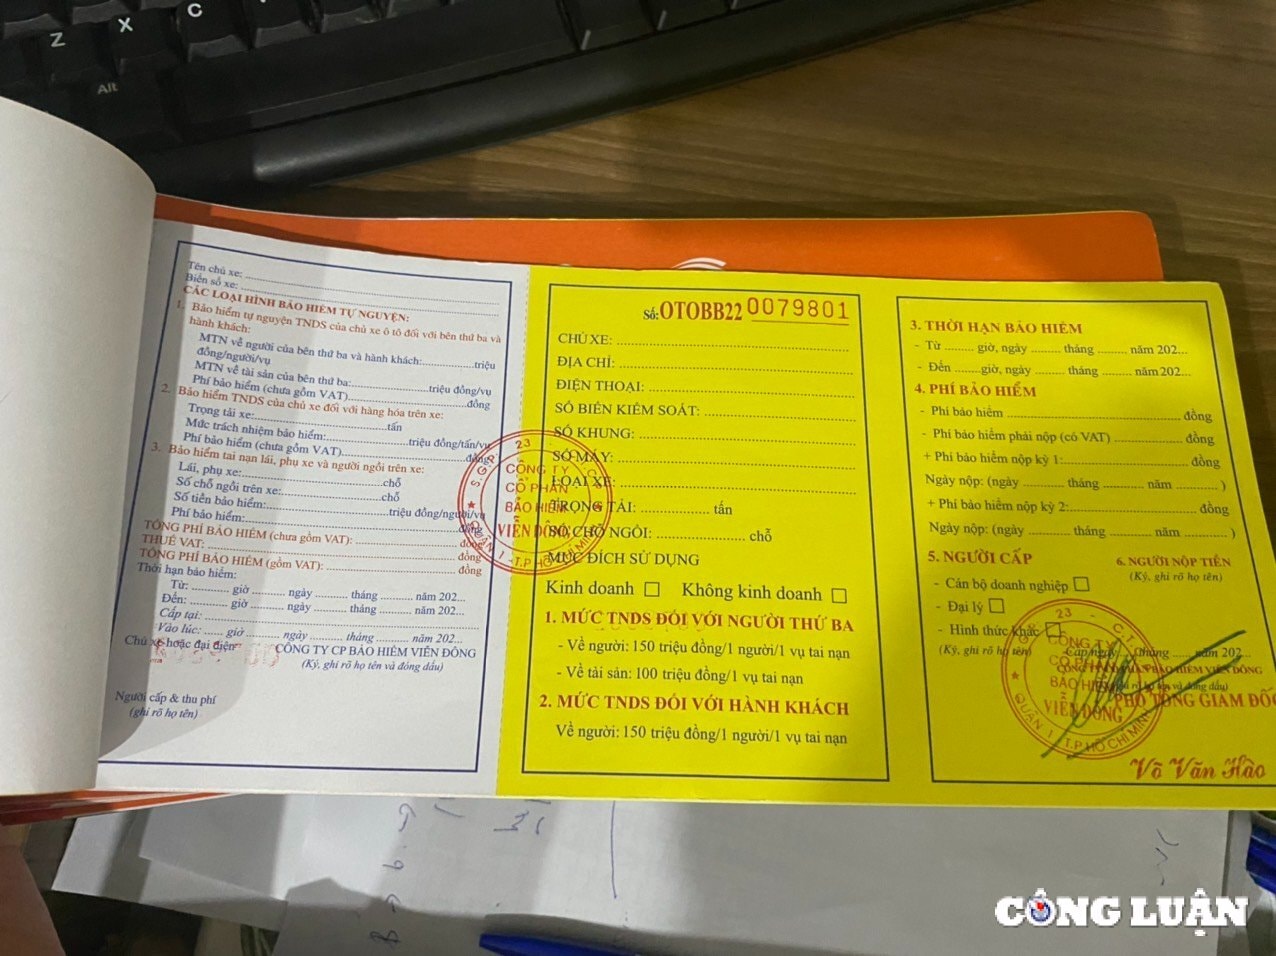 Z
X
C
Alt
Tên chủ xe:
Biển số xe:
CÁC LOẠI HÌNH BẢO HIỂM TỰ NGUYỆN:
1. Bảo hiểm tự nguyện TNDS của chủ xe ô tô đối với bên thứ ba và
hành khách:
MTN về người của bên thứ ba và hành khách:..........triệu
đồng/người/vụ
MTN về tài sản của bên thứ ba:..........triệu đồng/vụ
Phí bảo hiểm (chưa gồm VAT)..........đồng
2. Bảo hiểm TNDS của chủ xe đối với hàng hóa trên xe:
Trọng tải xe:..........tấn
Mức trách nhiệm bảo hiểm:..........triệu đồng/tấn/vụ
Phí bảo hiểm (chưa gồm VAT):..........đồng
3. Bảo hiểm tai nạn lái, phụ xe và người ngồi trên xe:
Lái, phụ xe:..........chỗ
Số chỗ ngồi trên xe:..........chỗ
Số tiền bảo hiểm:..........triệu đồng/người/vụ
Phí bảo hiểm:..........đồng
TỔNG PHÍ BẢO HIỂM (chưa gồm VAT):..........đồng
THUẾ VAT:..........đồng
TỔNG PHÍ BẢO HIỂM (gồm VAT):..........đồng
Thời hạn bảo hiểm:
Từ: .......... giờ .......... ngày .......... tháng .......... năm 202...
Đến: .......... giờ .......... ngày .......... tháng .......... năm 202...
Cấp tại:
Vào lúc: ...... giờ .......... ngày .......... tháng .......... năm 202...
Chủ xe hoặc đại diện
CÔNG TY CP BẢO HIỂM VIỄN ĐÔNG
(Ký, ghi rõ họ tên và đóng dấu)
Người cấp & thu phí
(ghi rõ họ tên)
Số: OTOBB22 0079801
CHỦ XE:
ĐỊA CHỈ:
ĐIỆN THOẠI:
SỐ BIỂN KIỂM SOÁT:
SỐ KHUNG:
SỐ MÁY:
LOẠI XE:
TRỌNG TẢI: .......... tấn
SỐ CHỖ NGỒI: .......... chỗ
MỤC ĐÍCH SỬ DỤNG
Kinh doanh □ Không kinh doanh □
1. MỨC TNDS ĐỐI VỚI NGƯỜI THỨ BA
- Về người: 150 triệu đồng/1 người/1 vụ tai nạn
- Về tài sản: 100 triệu đồng/1 vụ tai nạn
2. MỨC TNDS ĐỐI VỚI HÀNH KHÁCH
Về người: 150 triệu đồng/1 người/1 vụ tai nạn
CÔNG TY
CỔ PHẦN
BẢO HIỂM
VIỄN ĐÔNG
QUẬN 1 - T.P HỒ CHÍ MINH
3. THỜI HẠN BẢO HIỂM
- Từ ....... giờ, ngày ........ tháng ........ năm 202...
- Đến ....... giờ, ngày ........ tháng ........ năm 202...
4. PHÍ BẢO HIỂM
- Phí bảo hiểm .......... đồng
- Phí bảo hiểm phải nộp (có VAT) .......... đồng
+ Phí bảo hiểm nộp kỳ 1: .......... đồng
Ngày nộp: (ngày .......... tháng .......... năm .......... )
+ Phí bảo hiểm nộp kỳ 2: .......... đồng
Ngày nộp: (ngày .......... tháng .......... năm .......... )
5. NGƯỜI CẤP
6. NGƯỜI NỘP TIỀN
(Ký, ghi rõ họ tên)
- Cán bộ doanh nghiệp □
- Đại lý □
- Hình thức khác □
(Ký, ghi rõ họ tên)
Cấp ngày ..... tháng ..... năm 202...
BẢO HIỂM VIỄN ĐÔNG
CÔNG TY
CỔ PHẦN
BẢO HIỂM
VIỄN ĐÔNG
QUẬN 1 - T.P HỒ CHÍ MINH
PHÓ TỔNG GIÁM ĐỐC
Võ Văn Hào
CÔNG LUẬN